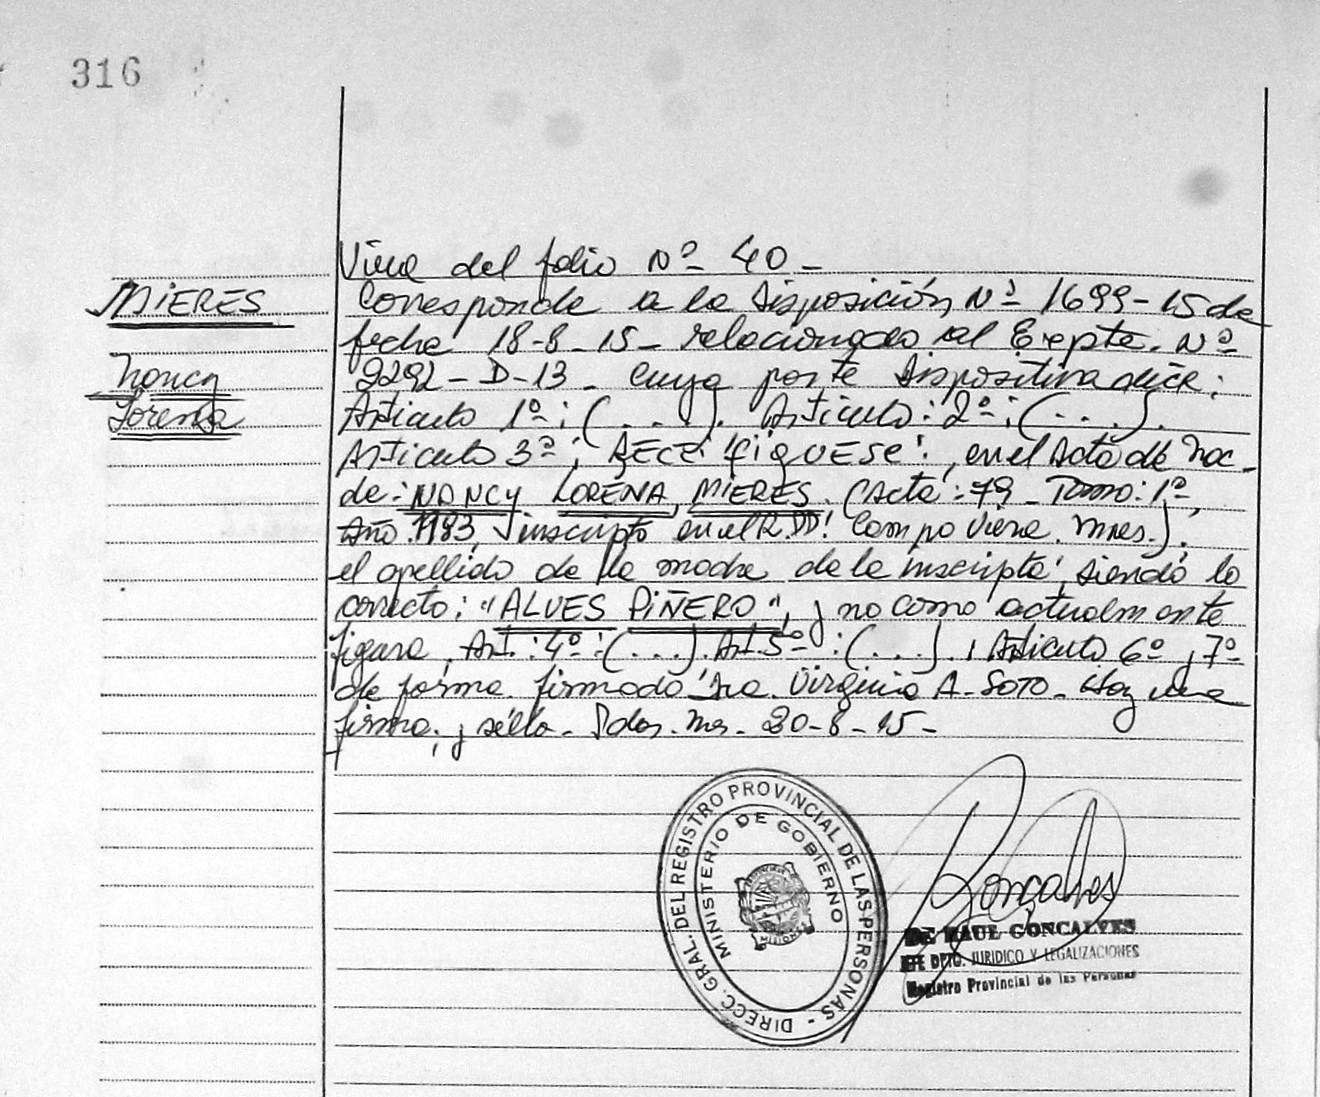 316
Viene del folio Nº 40 -
MIERES
Corresponde a la Disposición Nº 1699-15 de
fecha 18-8-15 - relacionado al Expte. Nº
Nancy
2292-D-13 - Cuya parte Dispositiva dice:
Lorena
Articulo 1º: (...). Articulo: 2º: (...).
Articulo 3º: RECTIFIQUESE: en el Acta de Nac-
de: NANCY LORENA MIERES. (Acta: 79 - Tomo: 1º,
Año 1983, inscripto en el R.DD. Campo Viera. Mnes.);
el apellido de la madre de la inscripta, siendo lo
correcto: "ALVES PIÑERO", y no como actualmente
figura, Art.: 4º: (...). Art. 5º: (...). , Articulo 6º y 7º
de forma. firmado Dra. Virginia A. SOTO - Hay una
firma, y sello - Pdas. Mns. 20-8-15 -
DIRECC. GRAL. DEL REGISTRO PROVINCIAL DE LAS PERSONAS -
MINISTERIO DE GOBIERNO
MISIONES
Goncalves
RAUL GONCALVES
JEFE DPTO. JURIDICO Y LEGALIZACIONES
Registro Provincial de las Personas